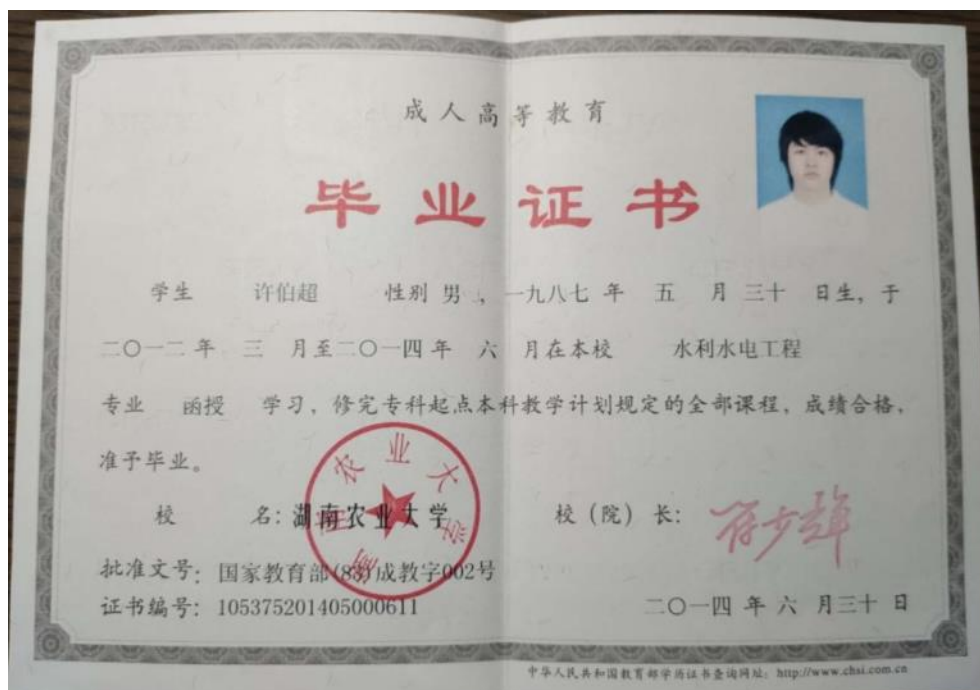 成人高等教育
毕业证书
学生 许伯超 性别 男 ，一九八七 年 五 月 三十 日生，于
二〇一二 年 三 月至二〇一四 年 六 月在本校 水利水电工程
专业 函授 学习，修完专科起点本科教学计划规定的全部课程，成绩合格，
准予毕业。
校 名：湖南农业大学 校（院）长：
湖南农业大学
批准文号：国家教育部(83)成教字002号
证书编号：105375201405000611 二〇一四 年 六 月三十 日
中华人民共和国教育部学历证书查询网址：http://www.chsi.com.cn